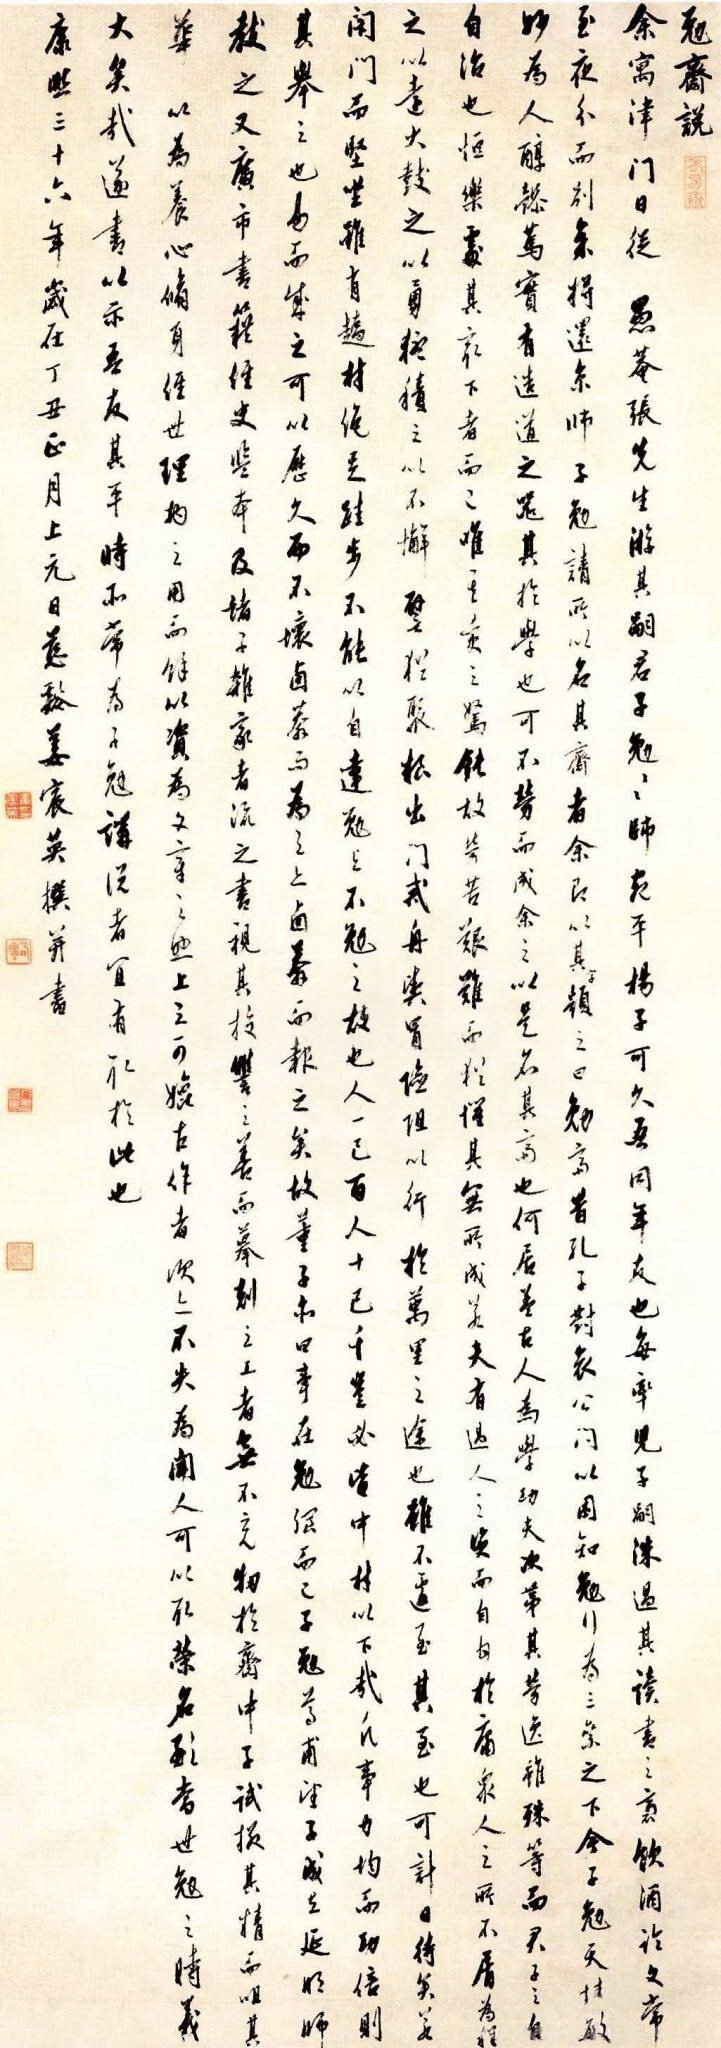 勉齋說
余寓津門日從 愚菴張先生游其嗣君子勉之師宛平楊子可久吾同年友也每率兒子嗣洙過其讀書之齋飲酒論文常
至夜分而別余將還京師子勉請所以名其齋者余即以其字顏之曰勉齋昔孔子對哀公問以困知勉行為三等之下今子勉天性敏
妙為人醇謹篤實有造道之器其於學也可不勞而成余之以是名其齋也何居蓋古人為學功夫次第其勞逸雖殊等而君子之自
自治也恒樂處其最下者而已唯其資之駑鈍故等苦艱難而猶懼其無所成若夫有過人之資而自甘於庸眾人之所不屑為程
之以遠大鼓之以勇猛積之以不懈 譬猶聚糧出門戒舟楫冒險阻以行於萬里之途也雖不遽至其至也可計日待矣若
閉門而堅坐雖有趫材絕足跬步不能以自達勉與不勉之故也人一己百人十己千豈必皆中材以下哉凡事力均而功倍則
其舉之也易而成之可以歷久而不壞鹵莽而為之亦鹵莽而報之矣故董子亦曰事在勉強而已子勉尊甫望子成立延明師
教之又廣市書籍經史監本及諸子雜家者流之書視其校讐之善而摹刻之工者無不充牣於齋中子試掇其精而咀其
華 以為養心脩身經世理物之用而餘以資為文章之興上之可媲古作者次亦不失為聞人可以取榮名顯當世勉之時義
大矣哉遂書以示吾友其平時所嘗為子勉講說者宜有取於此也
康熙三十六年歲在丁丑正月上元日慈谿姜宸英撰并書